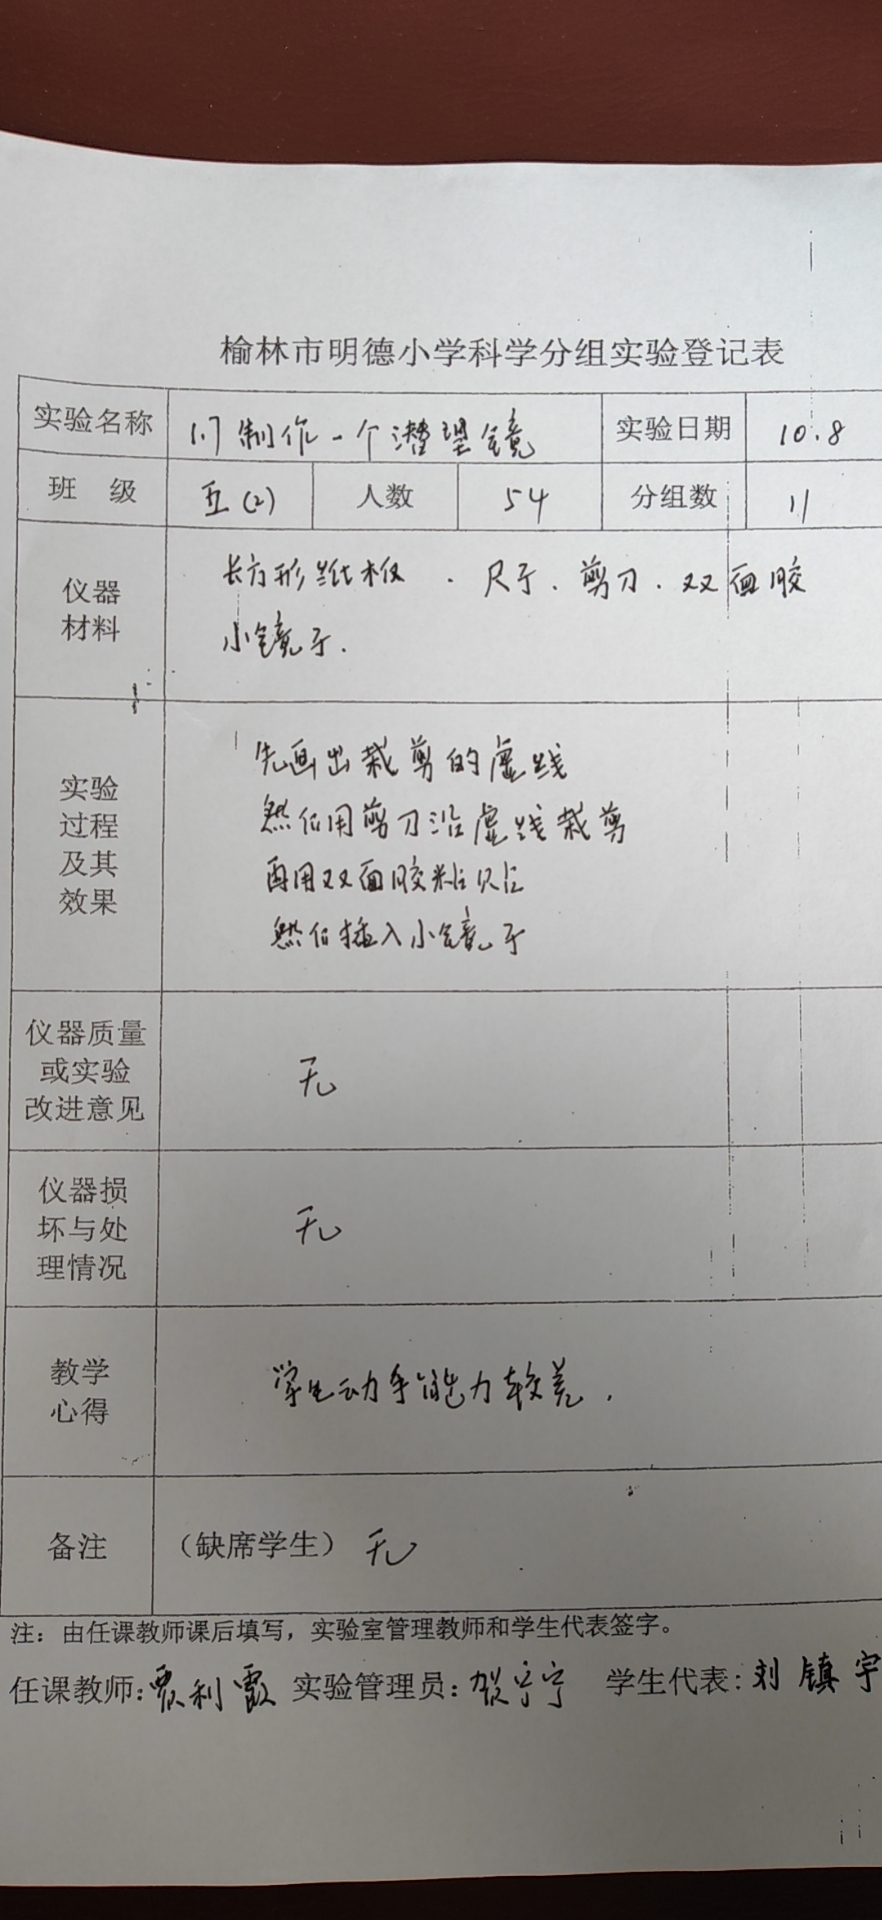 榆林市明德小学科学分组实验登记表
实验名称 1.7 制作一个潜望镜 实验日期 10.8
班 级 五(2) 人数 54 分组数 11
仪器材料 长方形纸板 . 尺子 . 剪刀 . 双面胶
小镜子 .
实验过程及其效果 先画出裁剪的虚线
然后用剪刀沿虚线裁剪
再用双面胶粘贴
然后插入小镜子
仪器质量或实验改进意见 无
仪器损坏与处理情况 无
教学心得 学生动手能力较差 .
备注 (缺席学生) 无
注：由任课教师课后填写，实验室管理教师和学生代表签字。
任课教师：贾利霞 实验管理员：贺宁宁 学生代表：刘镇宇